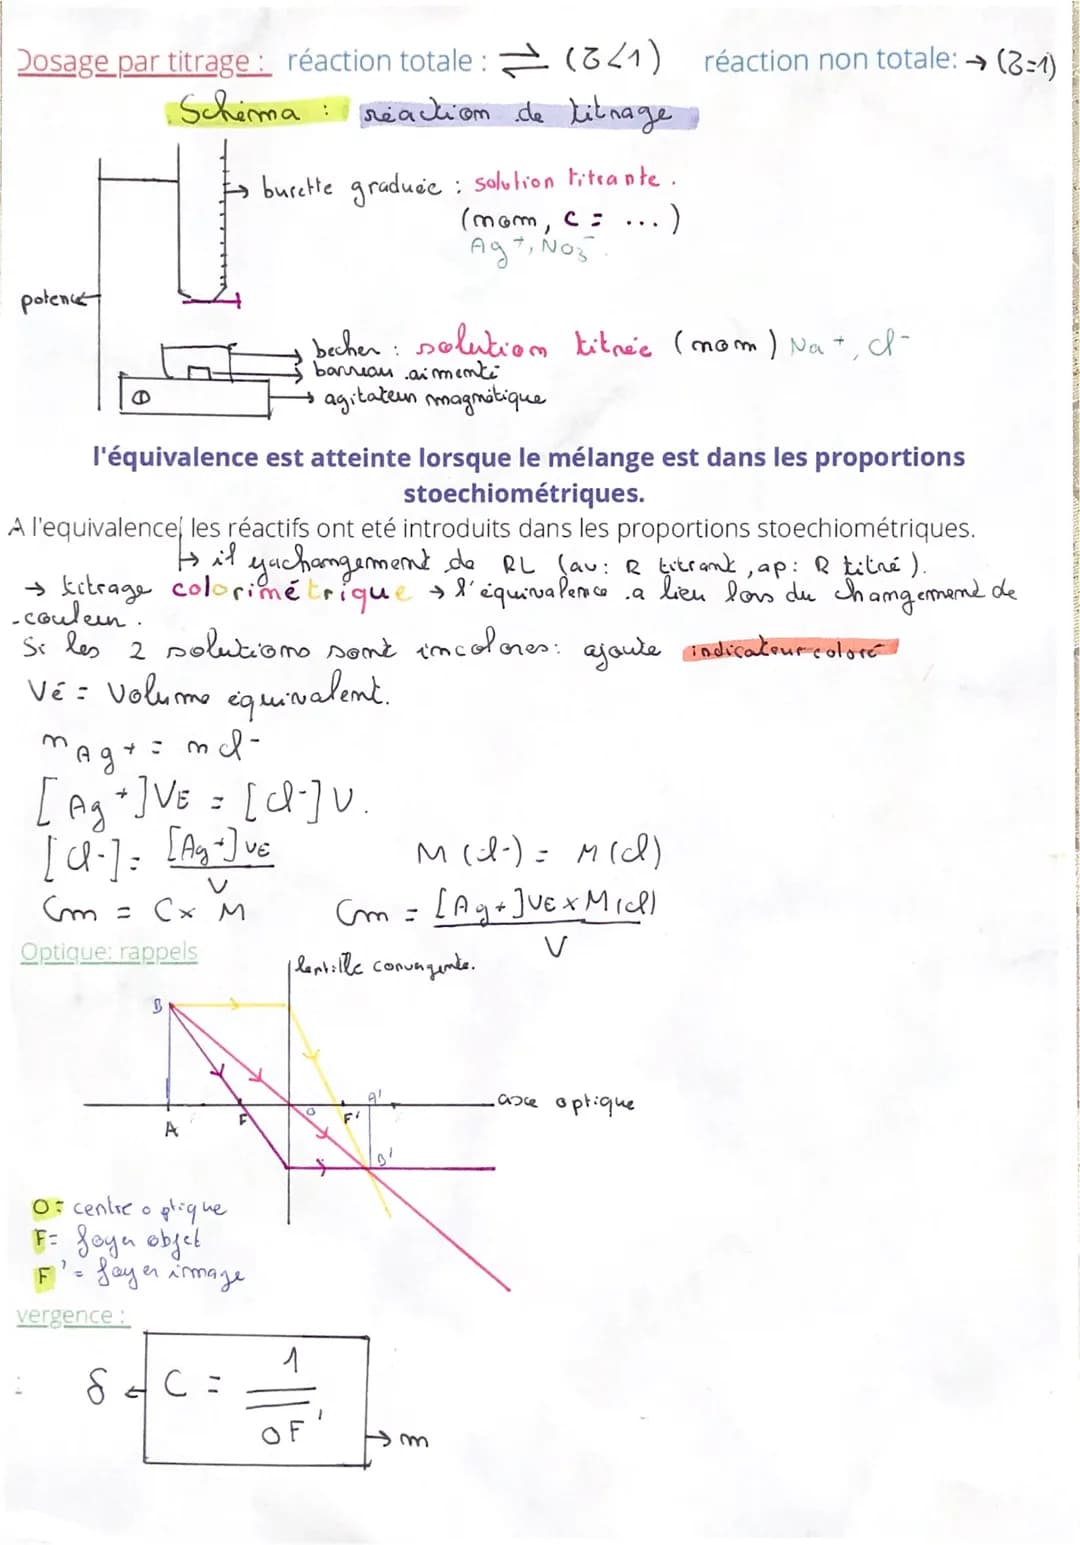 Dosage par titrage : réaction totale : ⇌ (ટ<1) réaction non totale: → (ટ=1)
Schéma : réaction de titrage
→ burette graduée : solution titrante.
(nom, c = ...)
Ag⁺, NO₃⁻.
potence
becher : solution titrée (nom) Na⁺, Cl⁻
barreau aimenté
→ agitateur magnétique
l'équivalence est atteinte lorsque le mélange est dans les proportions
stoechiométriques.
A l'equivalence, les réactifs ont eté introduits dans les proportions stoechiométriques.
↳ il y a changement de RL (av: R titrant, ap: R titré).
→ titrage colorimétrique → l'équivalence a lieu lors du changement de
couleur.
Si les 2 solutions sont incolores: ajoute indicateur coloré
Vé = Volume équivalent.
n Ag⁺ = n Cl⁻
[Ag⁺]VE = [Cl⁻]V.
[Cl⁻] = [Ag⁺]VE / V
M(Cl⁻) = M(Cl)
Cm = C × M
Cm = [Ag+]VE × M(Cl) / V
Optique: rappels
lentille convergente.
B
A'
axe optique
O
F
F'
A
B'
O = centre optique
F = foyer objet
F' = foyer image
vergence :
δ ← C = 1 / OF'
→ m